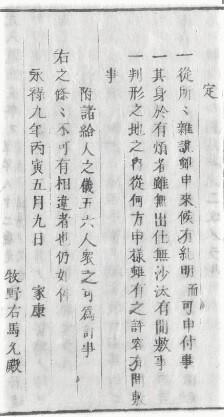 定
一従所〻雑説雖申来候有糺明而可申付事
一其身於有煩者雖無出仕無沙汰有間敷事
一判形之地之内従何方申様雖有之許容有間敷
事
附諸給人之儀五六人衆之可為計事
右之条〻不可有相違者也仍如件
永禄九年丙寅五月九日 家康
牧野右馬允殿